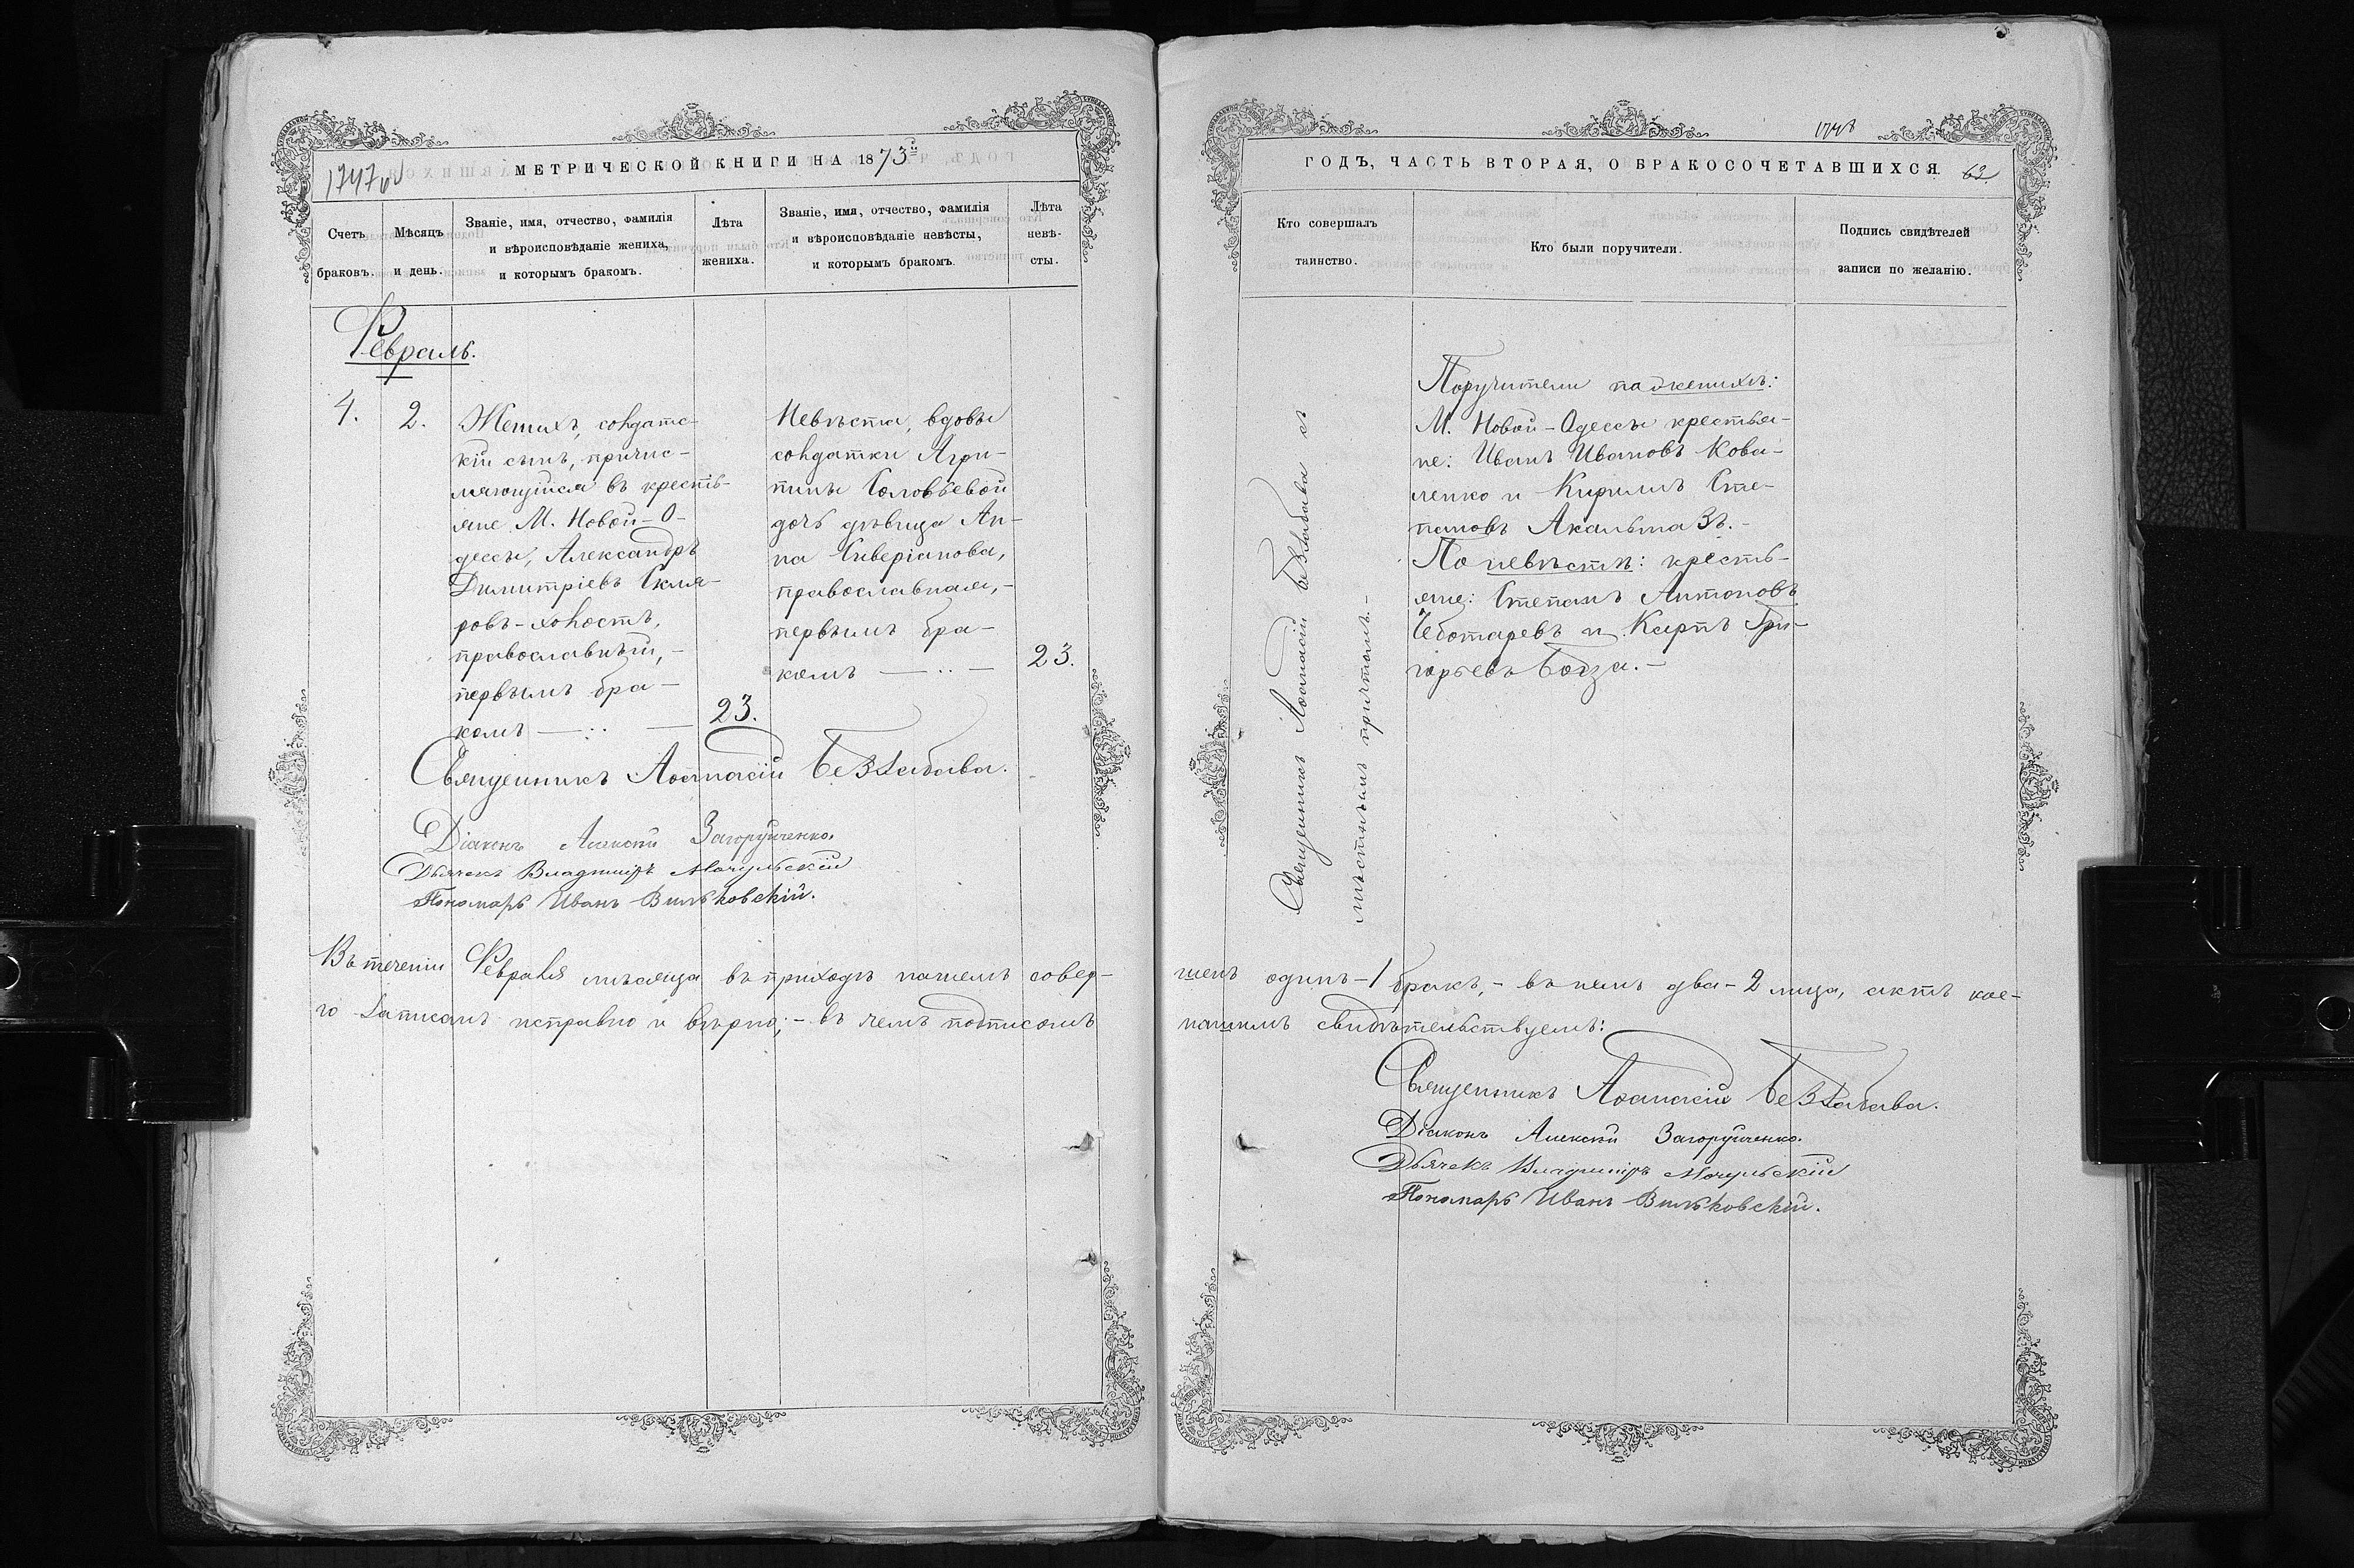 МЕТРИЧЕСКОЙ КНИГИ НА 1873й
1747об
Счетъ браковъ.
Мѣсяцъ и день.
Званіе, имя, отчество, фамилія
и вѣроисповѣданіе жениха,
и которымъ бракомъ.
Лѣта
жениха.
Званіе, имя, отчество, фамилія
и вѣроисповѣданіе невѣсты,
и которымъ бракомъ.
Лѣта
невѣ-
сты.
Февраль.
4.
2.
Женихъ, солдатс-
кій сынъ, причис-
ляющійся въ кресть-
яне М. Новой-О-
дессы, Александръ
Димитріевъ Скля-
ровъ-холостъ,
православный,-
первымъ бра-
комъ
23.
Невѣста, вдовы
солдатки Агри-
пины Соловьевой
дочь дѣвица Ан-
на Сиверіанова,
православная,-
первымъ бра-
комъ
23.
Священникъ Аѳанасій Беззабава.
Діаконъ Алексѣй Загоруйченко.
Дьячекъ Владиміръ Мочульскій
Пономарь Иванъ Вильковскій.
Въ теченіи Февраля мѣсяца въ приходѣ нашемъ совер-
го записанъ исправно и вѣрно;- въ чемъ подписомъ
1748
ГОДЪ, ЧАСТЬ ВТОРАЯ, О БРАКОСОЧЕТАВШИХСЯ.
63.
Кто совершалъ
таинство.
Кто были поручители.
Подпись свидѣтелей
записи по желанію.
Священникъ Аѳанасій Беззабава съ
мѣстнымъ причтомъ.-
Поручители по женихѣ:
М. Новой-Одессы крестья-
не: Иванъ Ивановъ Кова-
ленко и Кирилъ Сте-
пановъ Акальтазъ.-
По невѣстѣ: кресть-
яне: Степанъ Антоновъ
Чеботаревъ и Карпъ Гри-
горьевъ Бобза.-
шенъ одинъ-1 бракъ,- въ немъ два-2 лица, актъ кое-
нашимъ свидѣтельствуемъ:
Священникъ Аѳанасій Беззабава.
Діаконъ Алексѣй Загоруйченко.
Дьячекъ Владиміръ Мочульскій
Пономарь Иванъ Вильковскій.